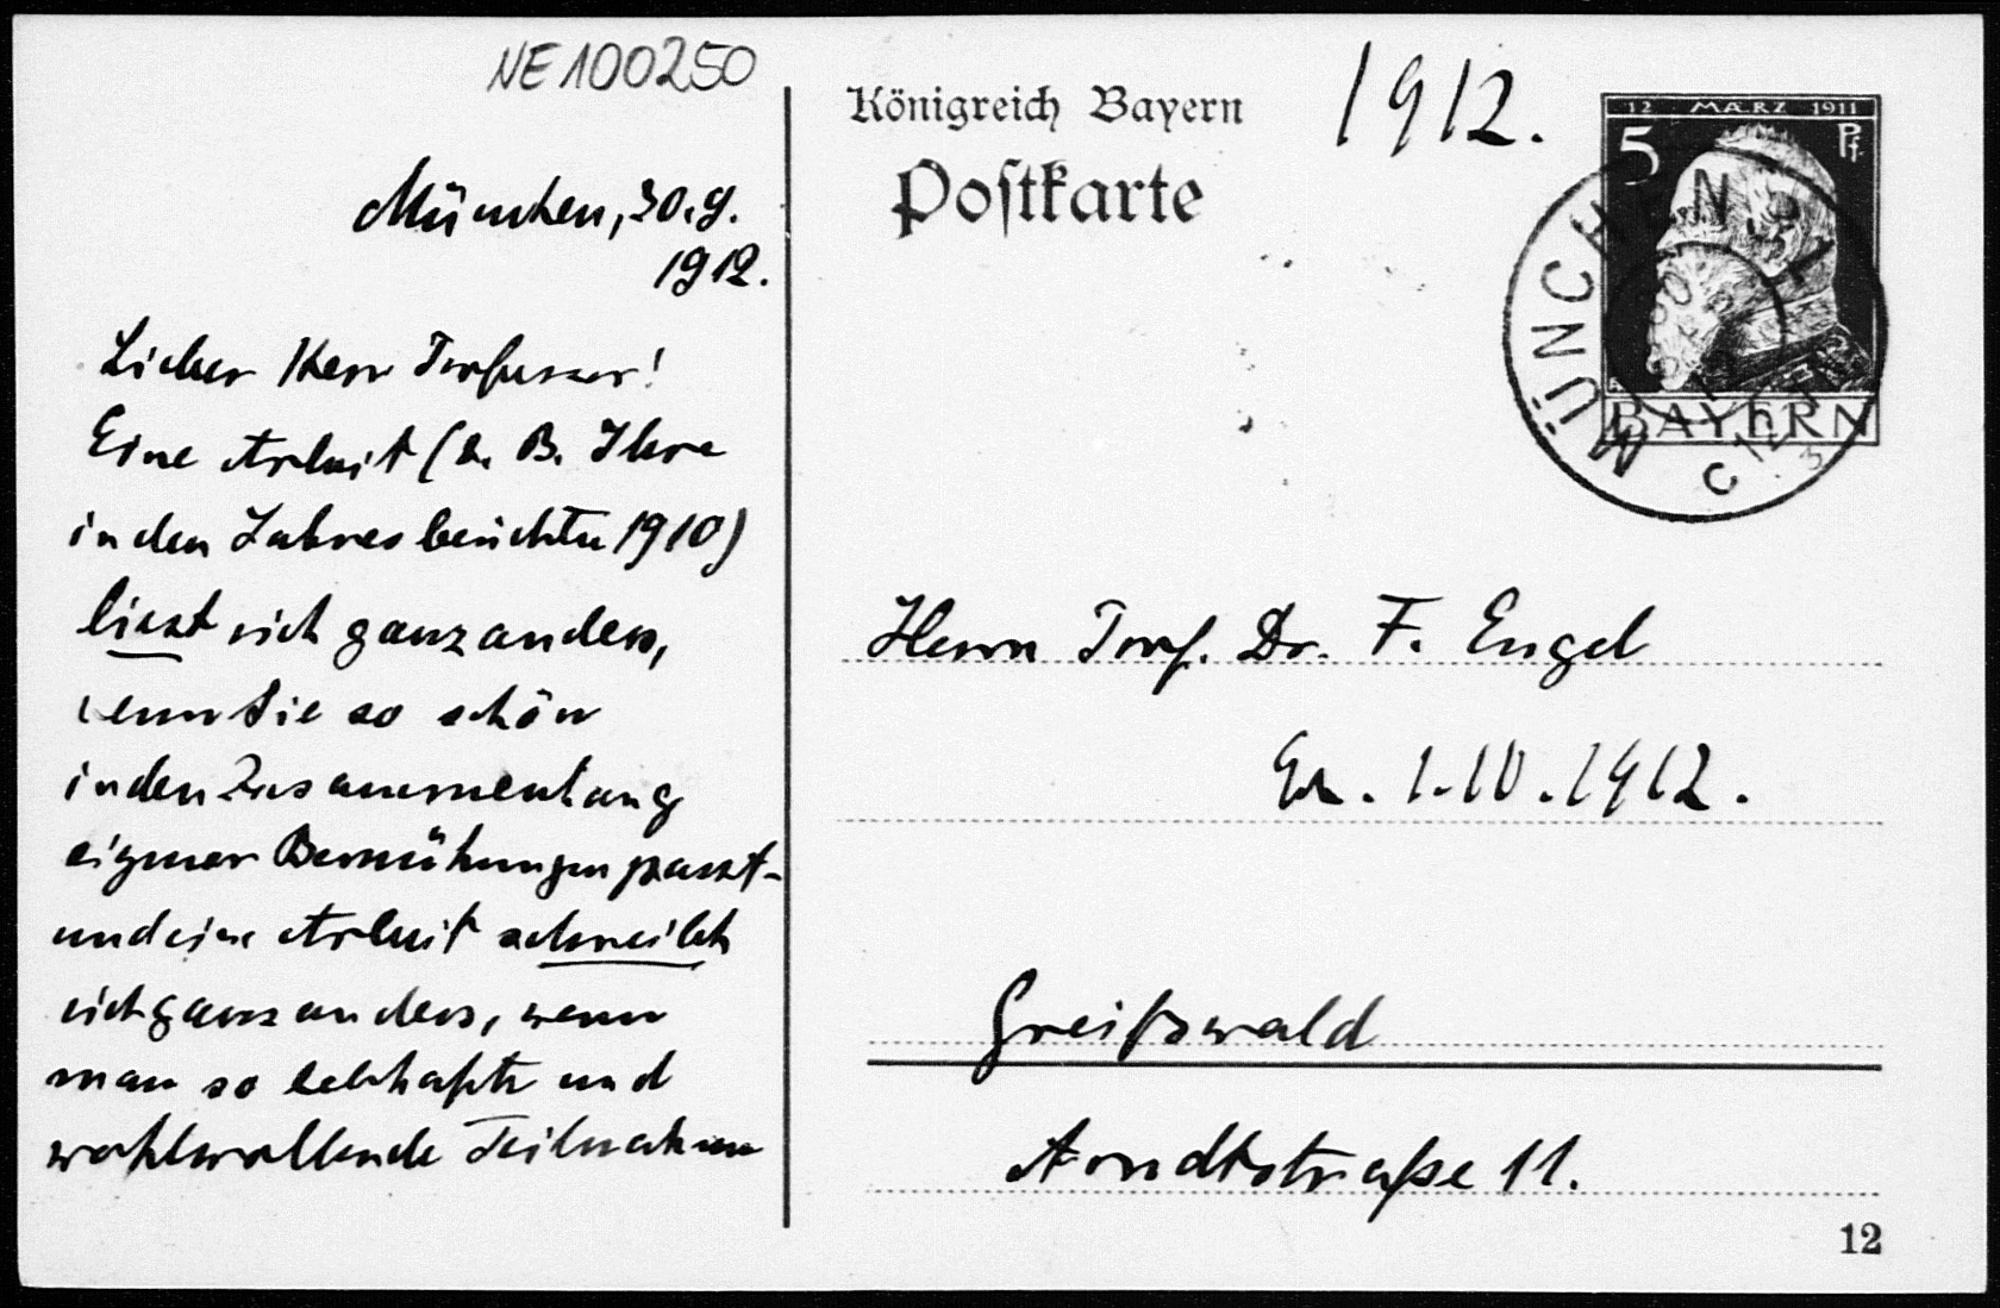 NE100250
München, 30.9.
1912.
Lieber Herr Professor!
Eine Arbeit (z. B. Ihre
in den Jahresberichten 1910)
liest sich ganz anders,
wenn sie so schön
in den Zusammenhang
eigener Bemühungen passt –
und eine Arbeit schreibt
sich ganz anders, wenn
man so lebhafte und
wohlwollende Teilnahme
Königreich Bayern
Postkarte
1912.
12 MÆRZ 1911
5 Pf.
BAYERN
MÜNCHEN
Herrn Prof. Dr. F. Engel
Er. 1.10.1912.
Greifswald
Arndtstraße 11.
12